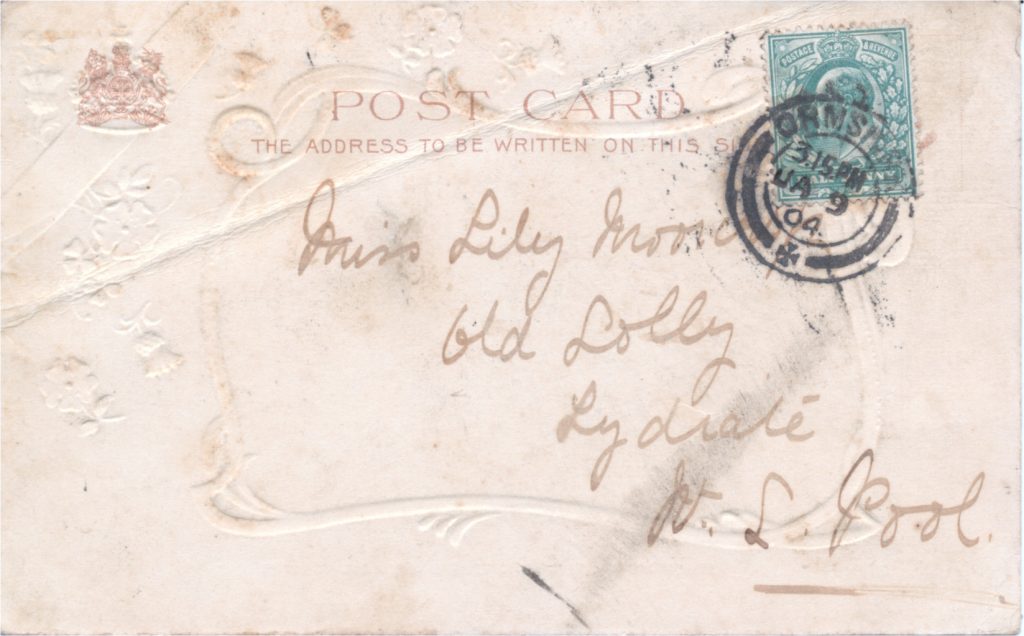 POST CARD
THE ADDRESS TO BE WRITTEN ON THIS
POSTAGE & REVENUE
ORMSKIRK
3.15 PM
JA 9
04
Miss Lily
Old Lolly
Lydiate
N. L. Pool.